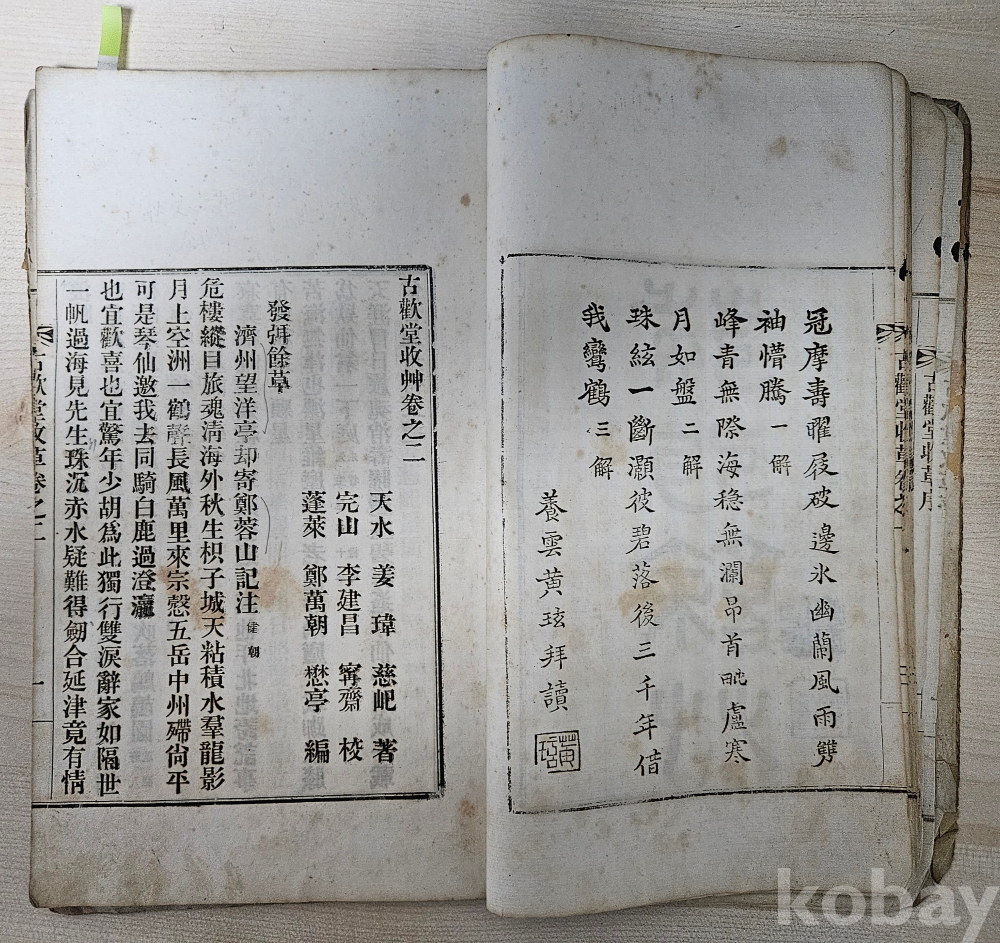 冠摩壽曜屐破邊氷幽蘭風雨雙
袖懵騰 一解
峰青無際海稳無瀾昂首眺盧寒
月如盤 二解
珠絃一斷灝彼碧落後三千年借
我鸞鶴 三解
養雲黄玹拜讀
古歡堂收艸卷之二
天水 姜瑋 慈屺 著
完山 李建昌 寗齋 校
蓬萊 鄭萬朝 懋亭 編
發弭餘草
濟州望洋亭却寄鄭蓉山記注 健朝
危樓縱目旅魂清海外秋生枳子城天粘積水羣龍影
月上空洲一鶴聲長風萬里來宗慤五岳中州殢尙平
可是琴仙邀我去同騎白鹿過澄瀛
也宜歡喜也宜驚年少胡爲此獨行雙淚辭家如隔世
一帆過海見先生珠沉赤水疑難得劒合延津竟有情
古歡堂收草卷之二
一
古歡堂收草序
kobay